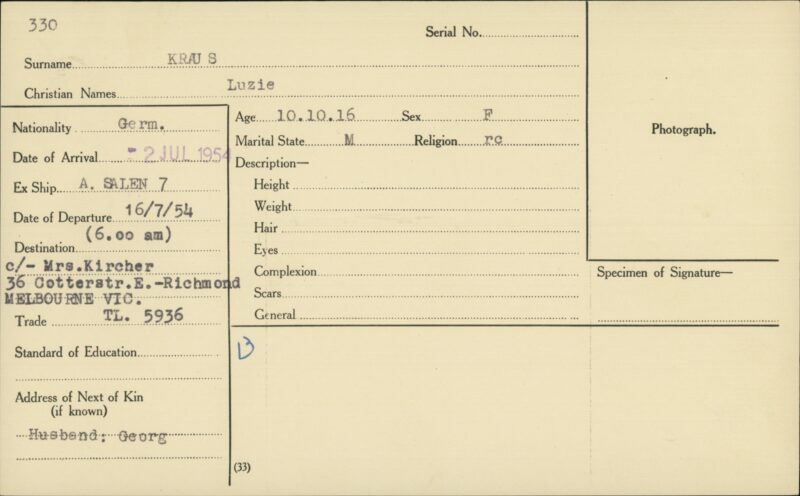 330
Serial No.
Surname KRAUS
Christian Names Luzie
Nationality Germ.
Date of Arrival - 2 JUL 1954
Ex Ship A. SALEN 7
Date of Departure 16/7/54
(6.00 am)
Destination
c/- Mrs.Kircher
36 Cotterstr.E.-Richmond
MELBOURNE VIC.
Trade TL. 5936
Standard of Education
Address of Next of Kin
(if known)
Husband: Georg
Age 10.10.16 Sex F
Marital State M Religion rc
Description—
Height
Weight
Hair
Eyes
Complexion
Scars
General
B
(33)
Photograph.
Specimen of Signature—